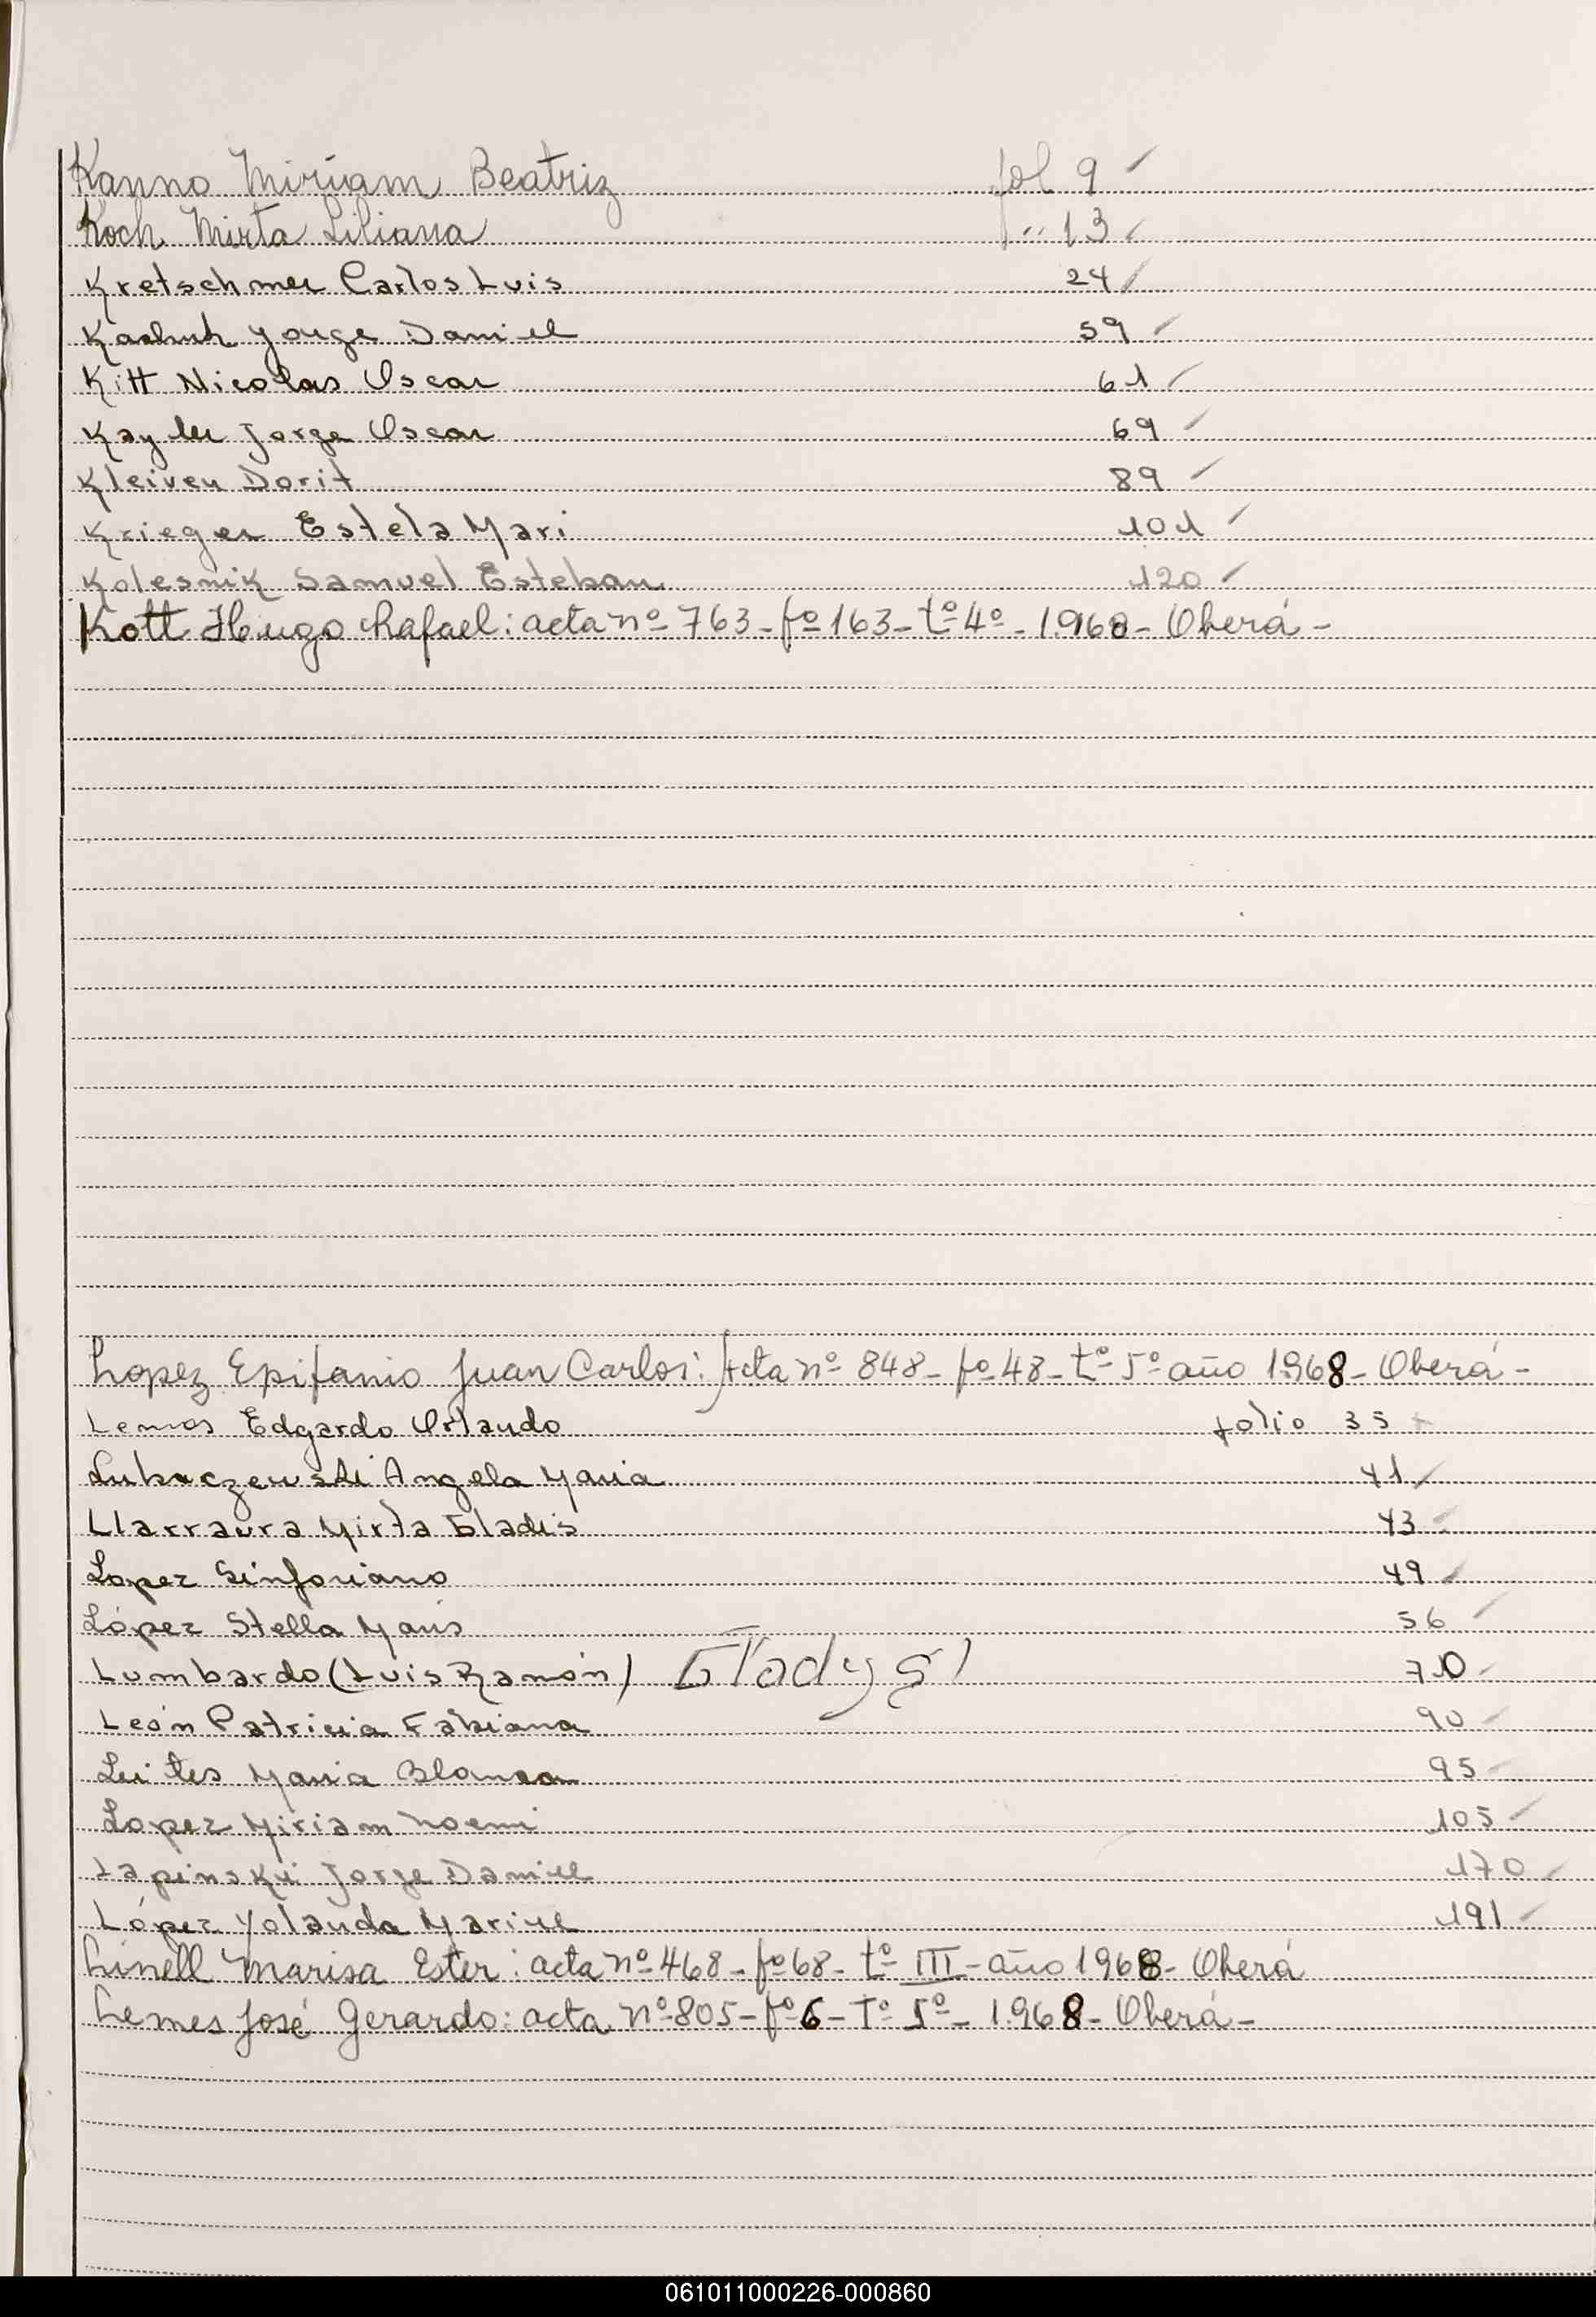 Kanno Miriam Beatriz fol 9
Koch Mirta Liliana f" 13
Kretschmer Carlos Luis 24
Jorge Daniel 59
Kitt Nicolas Oscar 61
Kayler Jorge Oscar 69
Kleiven Dorit 89
Krieger Estela Mari 101
Kolesnik Samuel Esteban 120
Kott Hugo Rafael: acta nº 763- fº 163- tº 4º - 1.968- Oberá-
Lopez Epifanio Juan Carlos: Acta nº 848- fº 48- tº 5º año 1968- Oberá-
Lemos Edgardo Orlando folio 35
Lukaczewski Angela Maria 41
Llarraura Mirta Gladis 43
Lopez Sinforiano 49
López Stella Maris 56
Lumbardo (Luis Ramón) Gladys 70
León Patricia Fabiana 90
Leites Maria Blanca 95
Lopez Miriam Noemi 105
Lapinski Jorge Daniel 170
López Yolanda Mariel 191
Linell Marisa Ester: acta nº 468- fº 68- tº III- año 1968- Oberá
Lemes José Gerardo: acta nº 805- fº 6- Tº 5º- 1.968- Oberá-
061011000226-000860